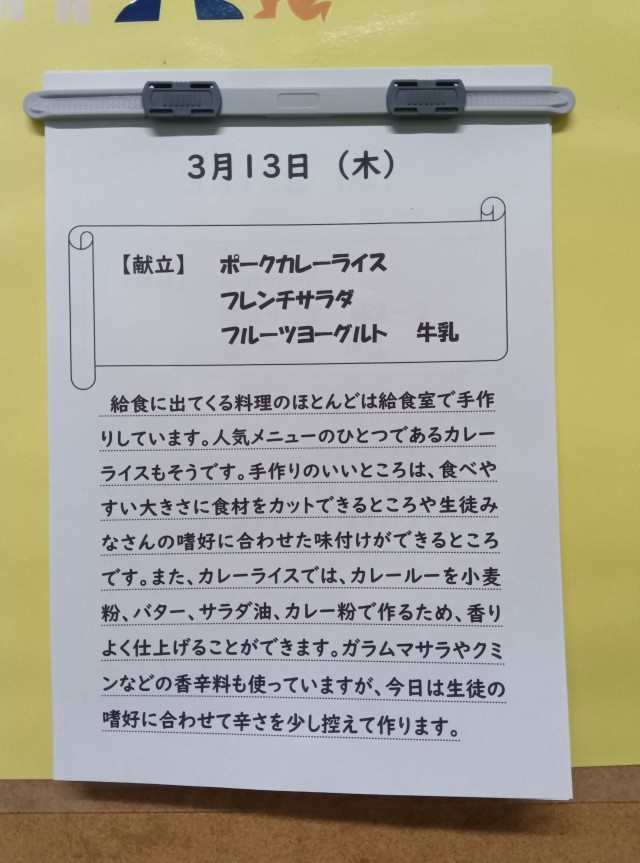 3月13日 （木）
【献立】 ポークカレーライス
フレンチサラダ
フルーツヨーグルト 牛乳
給食に出てくる料理のほとんどは給食室で手作
りしています。人気メニューのひとつであるカレー
ライスもそうです。手作りのいいところは、食べや
すい大きさに食材をカットできるところや生徒み
なさんの嗜好に合わせた味付けができるところ
です。また、カレーライスでは、カレールーを小麦
粉、バター、サラダ油、カレー粉で作るため、香り
よく仕上げることができます。ガラムマサラやクミ
ンなどの香辛料も使っていますが、今日は生徒の
嗜好に合わせて辛さを少し控えて作ります。